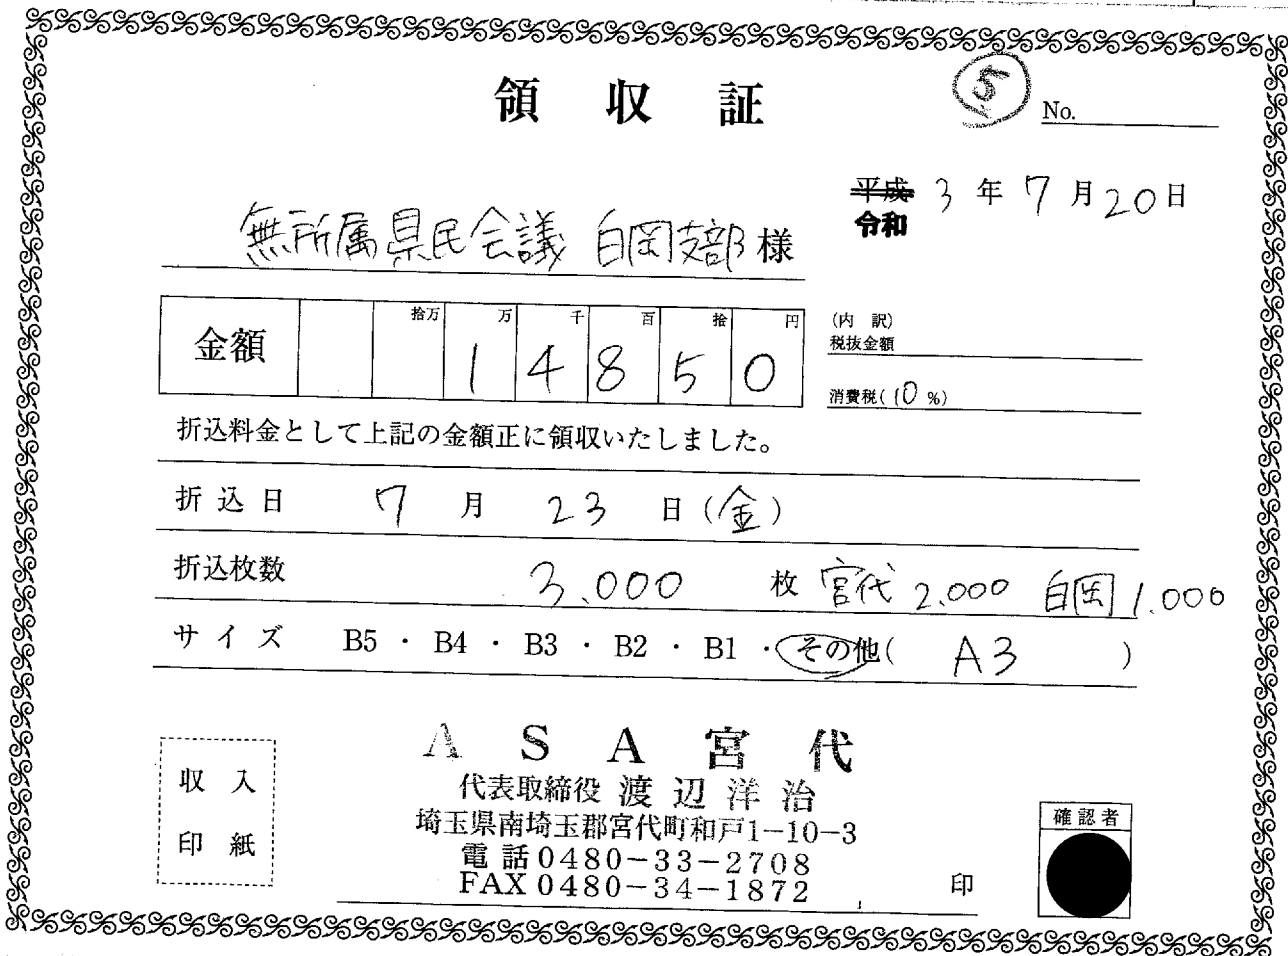 領収証
⑤
No.
平成 3年7月20日
令和
無所属県民会議 白岡支部 様
金額 拾万 万 千 百 拾 円
14850
(内 訳)
税抜金額
消費税(10%)
折込料金として上記の金額正に領収いたしました。
折込日 7月23日(金)
折込枚数 3.000枚 宮代 2.000 白岡 1.000
サイズ B5・B4・B3・B2・B1・その他( A3 )
収入
印紙
ASA宮代
代表取締役 渡辺洋治
埼玉県南埼玉郡宮代町和戸1-10-3
電話0480-33-2708
FAX 0480-34-1872
印
確認者